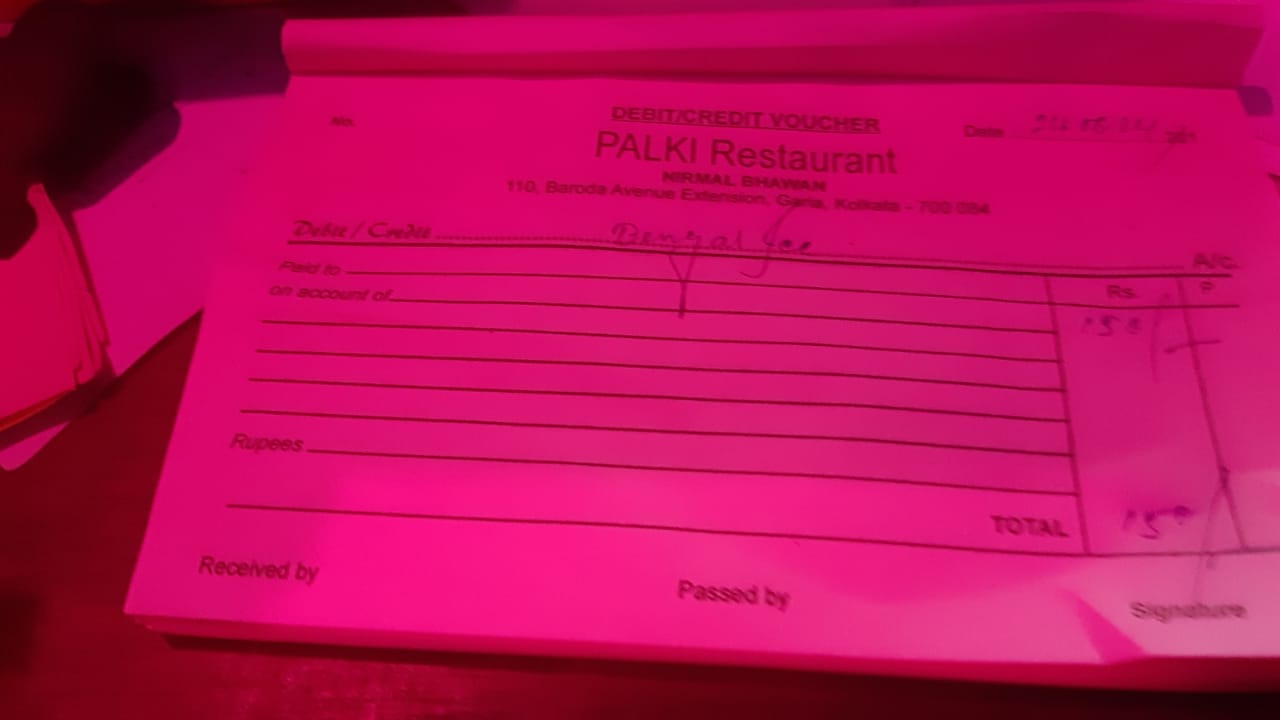 DEBIT/CREDIT VOUCHER
No. Date
PALKI Restaurant
NIRMAL BHAWAN
110, Baroda Avenue Extension, Garia, Kolkata - 700 084
Debit / Credit Bengal Ice A/c.
Paid to Rs. P
on account of
150/-
Rupees
TOTAL 150
Received by Passed by Signature